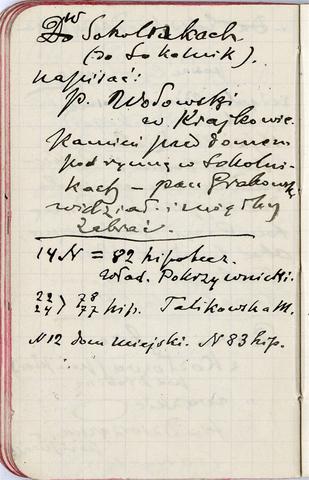 w Sokolnikach
(do Sokolnik).
napisać:
p. Wodowski
w Krajkowie.
Kamień przed domem
pod rynną w Sokolni-
kach – pan Grabowski
widział i mógłby
zabrać.
14 N = 82 hipotecz.
Wład. Pokrzywnicki.
22 } 78
24 } 77 hip. Talikowska M.
N 12 dom miejski. N 83 hip.